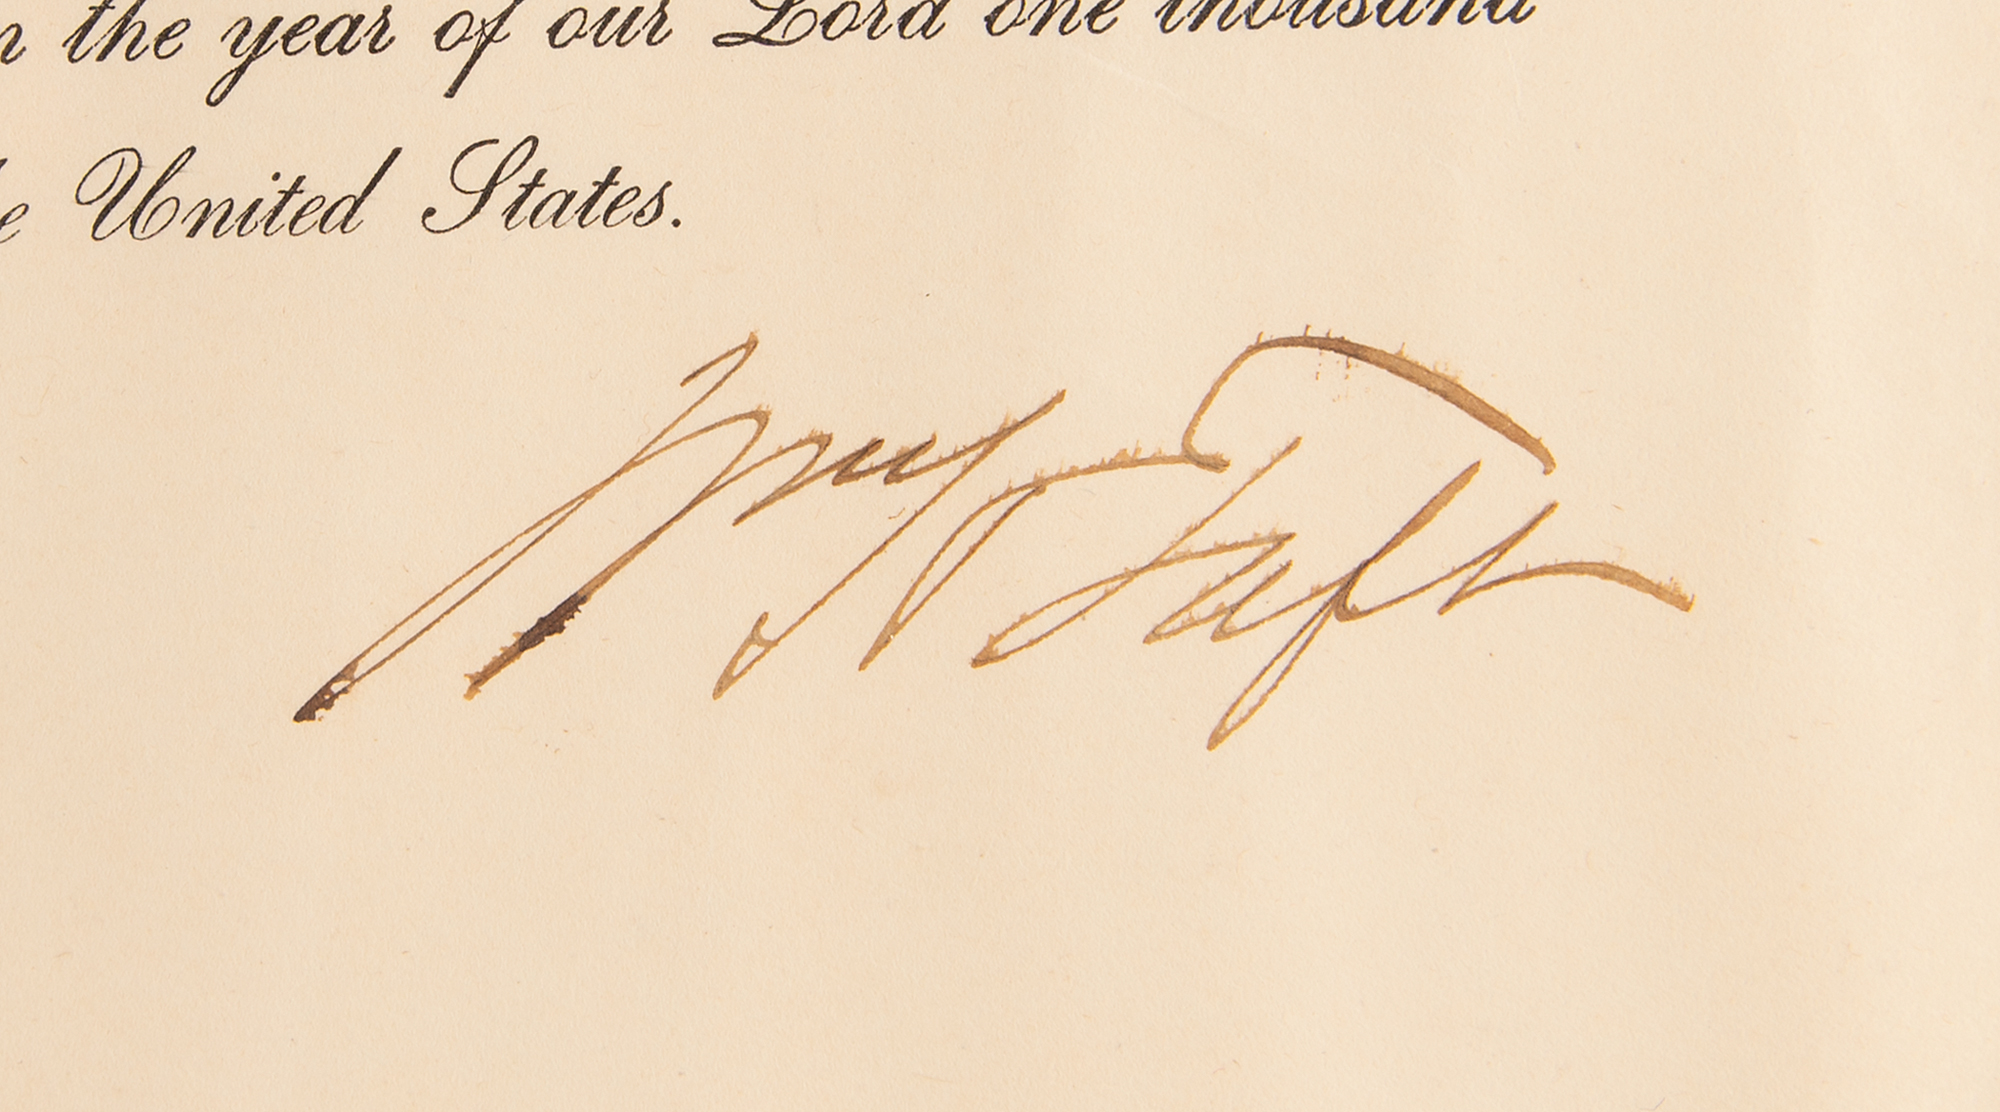 n the year of our Lord one thousand
e United States.
Wm H Taft